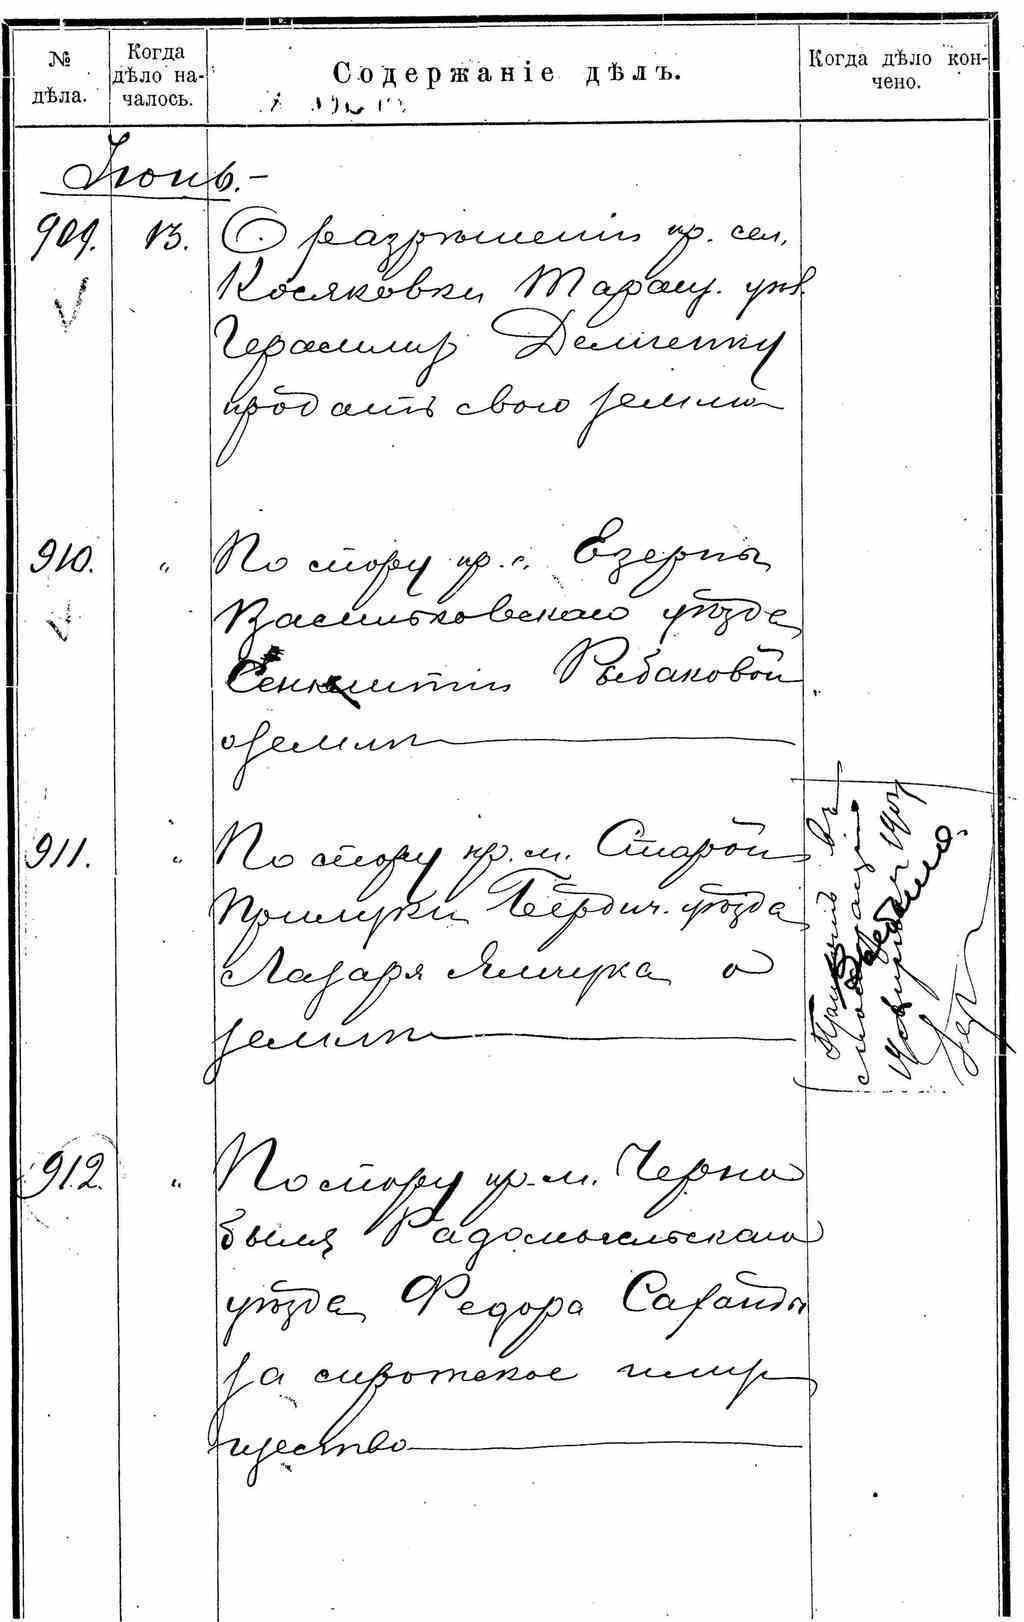 № дѣла.
Когда дѣло началось.
Содержаніе дѣлъ.
Когда дѣло кончено.
Іюнь.-
909. 13. О разрѣшеніи кр. сел.
Косяковки Таращ. уѣз.
Герасиму Демченку
продать свою землю
910. " По спору кр. с. Езерны
Васильковскаго уѣзда
Рыбаковой
о землѣ
911. " По спору кр. м. Старой
Прилуки Бердич. уѣзда
Лазаря Ямчука о
землѣ
912. " По спору кр. м. Черно
быля Радомысльскаго
уѣзда Федора Сахайды
за сиротское иму
щество